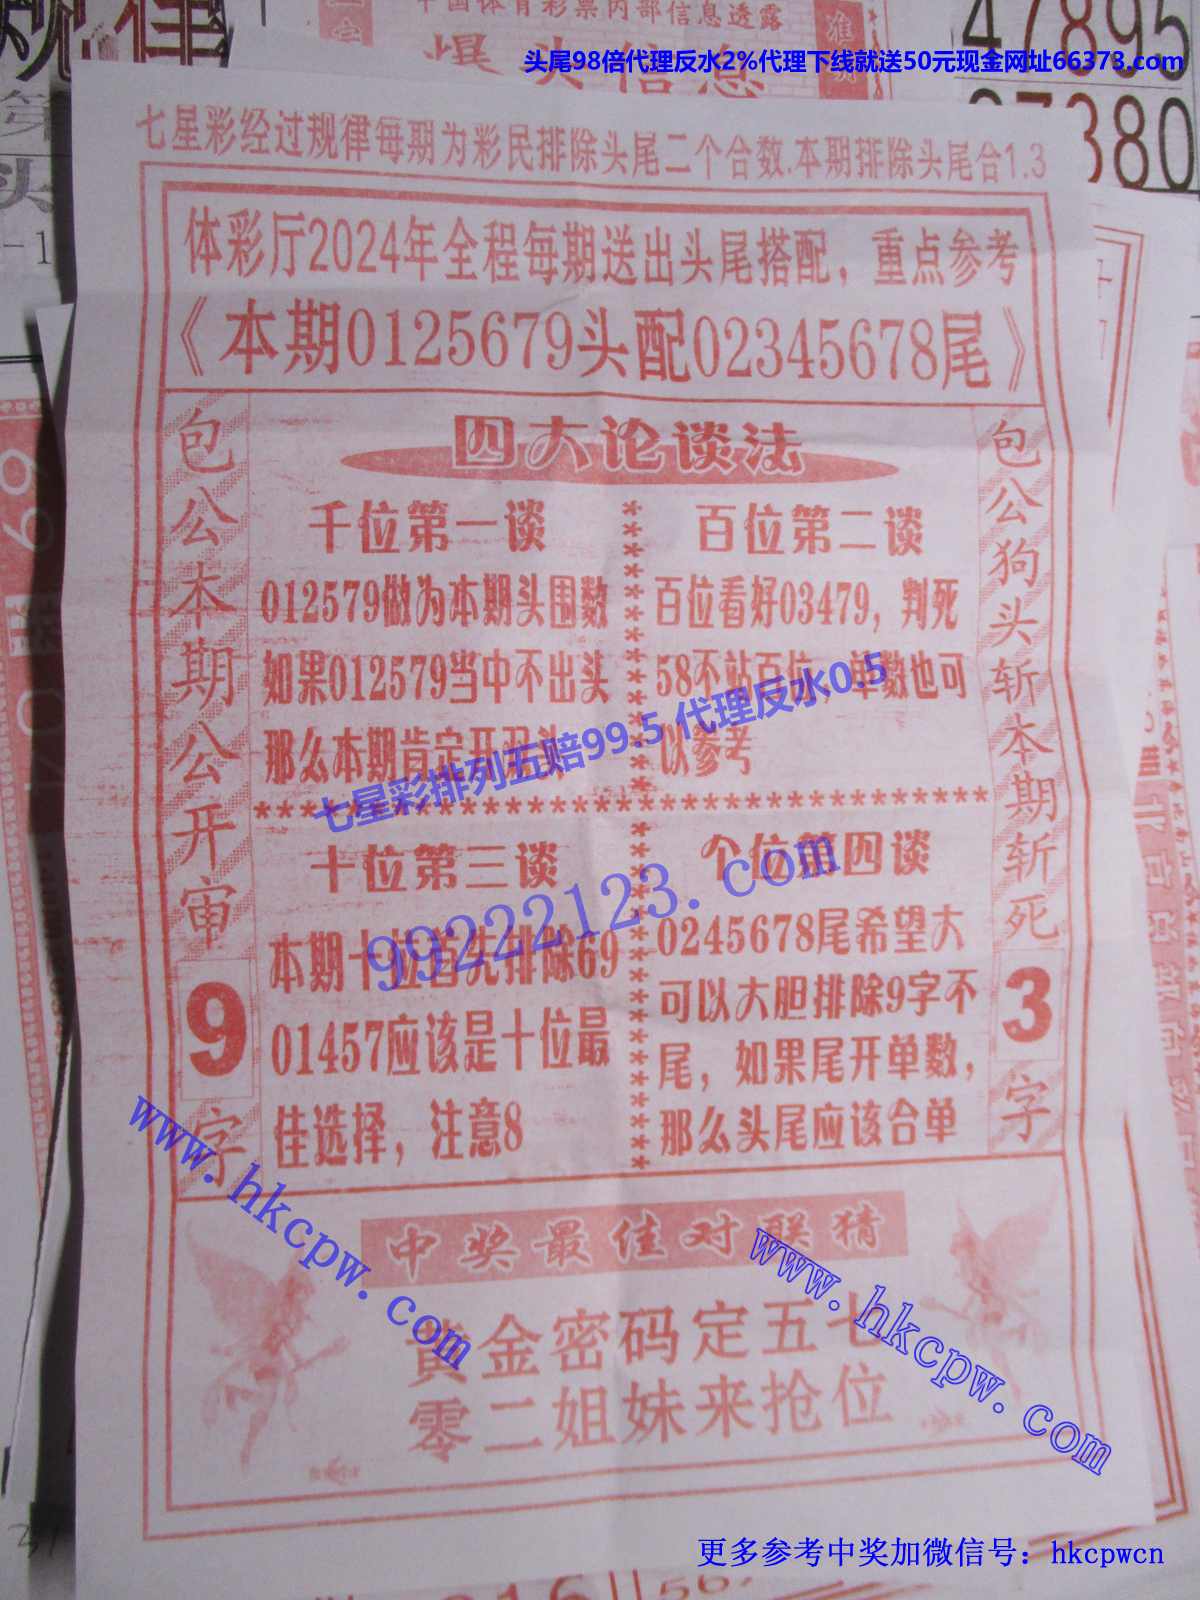 规律
中国体育彩票内部信息透露
爆火信息
47895
头尾98倍代理反水2%代理下线就送50元现金网址66373.com
七星彩经过规律每期为彩民排除头尾二个合数.本期排除头尾合1.3
体彩厅2024年全程每期送出头尾搭配，重点参考
《本期0125679头配02345678尾》
包公本期公开审9字
四大论谈法
千位第一谈
012579做为本期头围数
如果012579当中不出头
那么本期肯定开
百位第二谈
百位看好03479，判死
58不站百位，单数也可
以参考
七星彩排列五赔99.5 代理反水0.5
十位第三谈
本期十位首先排除69
01457应该是十位最
佳选择，注意8
个位第四谈
0245678尾希望大
可以大胆排除9字不
尾，如果尾开单数，
那么头尾应该合单
99222123.com
包公狗头斩本期斩死3字
www.hkcpw.com
www.hkcpw.com
中奖最佳对联猜
黄金密码定五七
零二姐妹来抢位
更多参考中奖加微信号：hkcpwcn